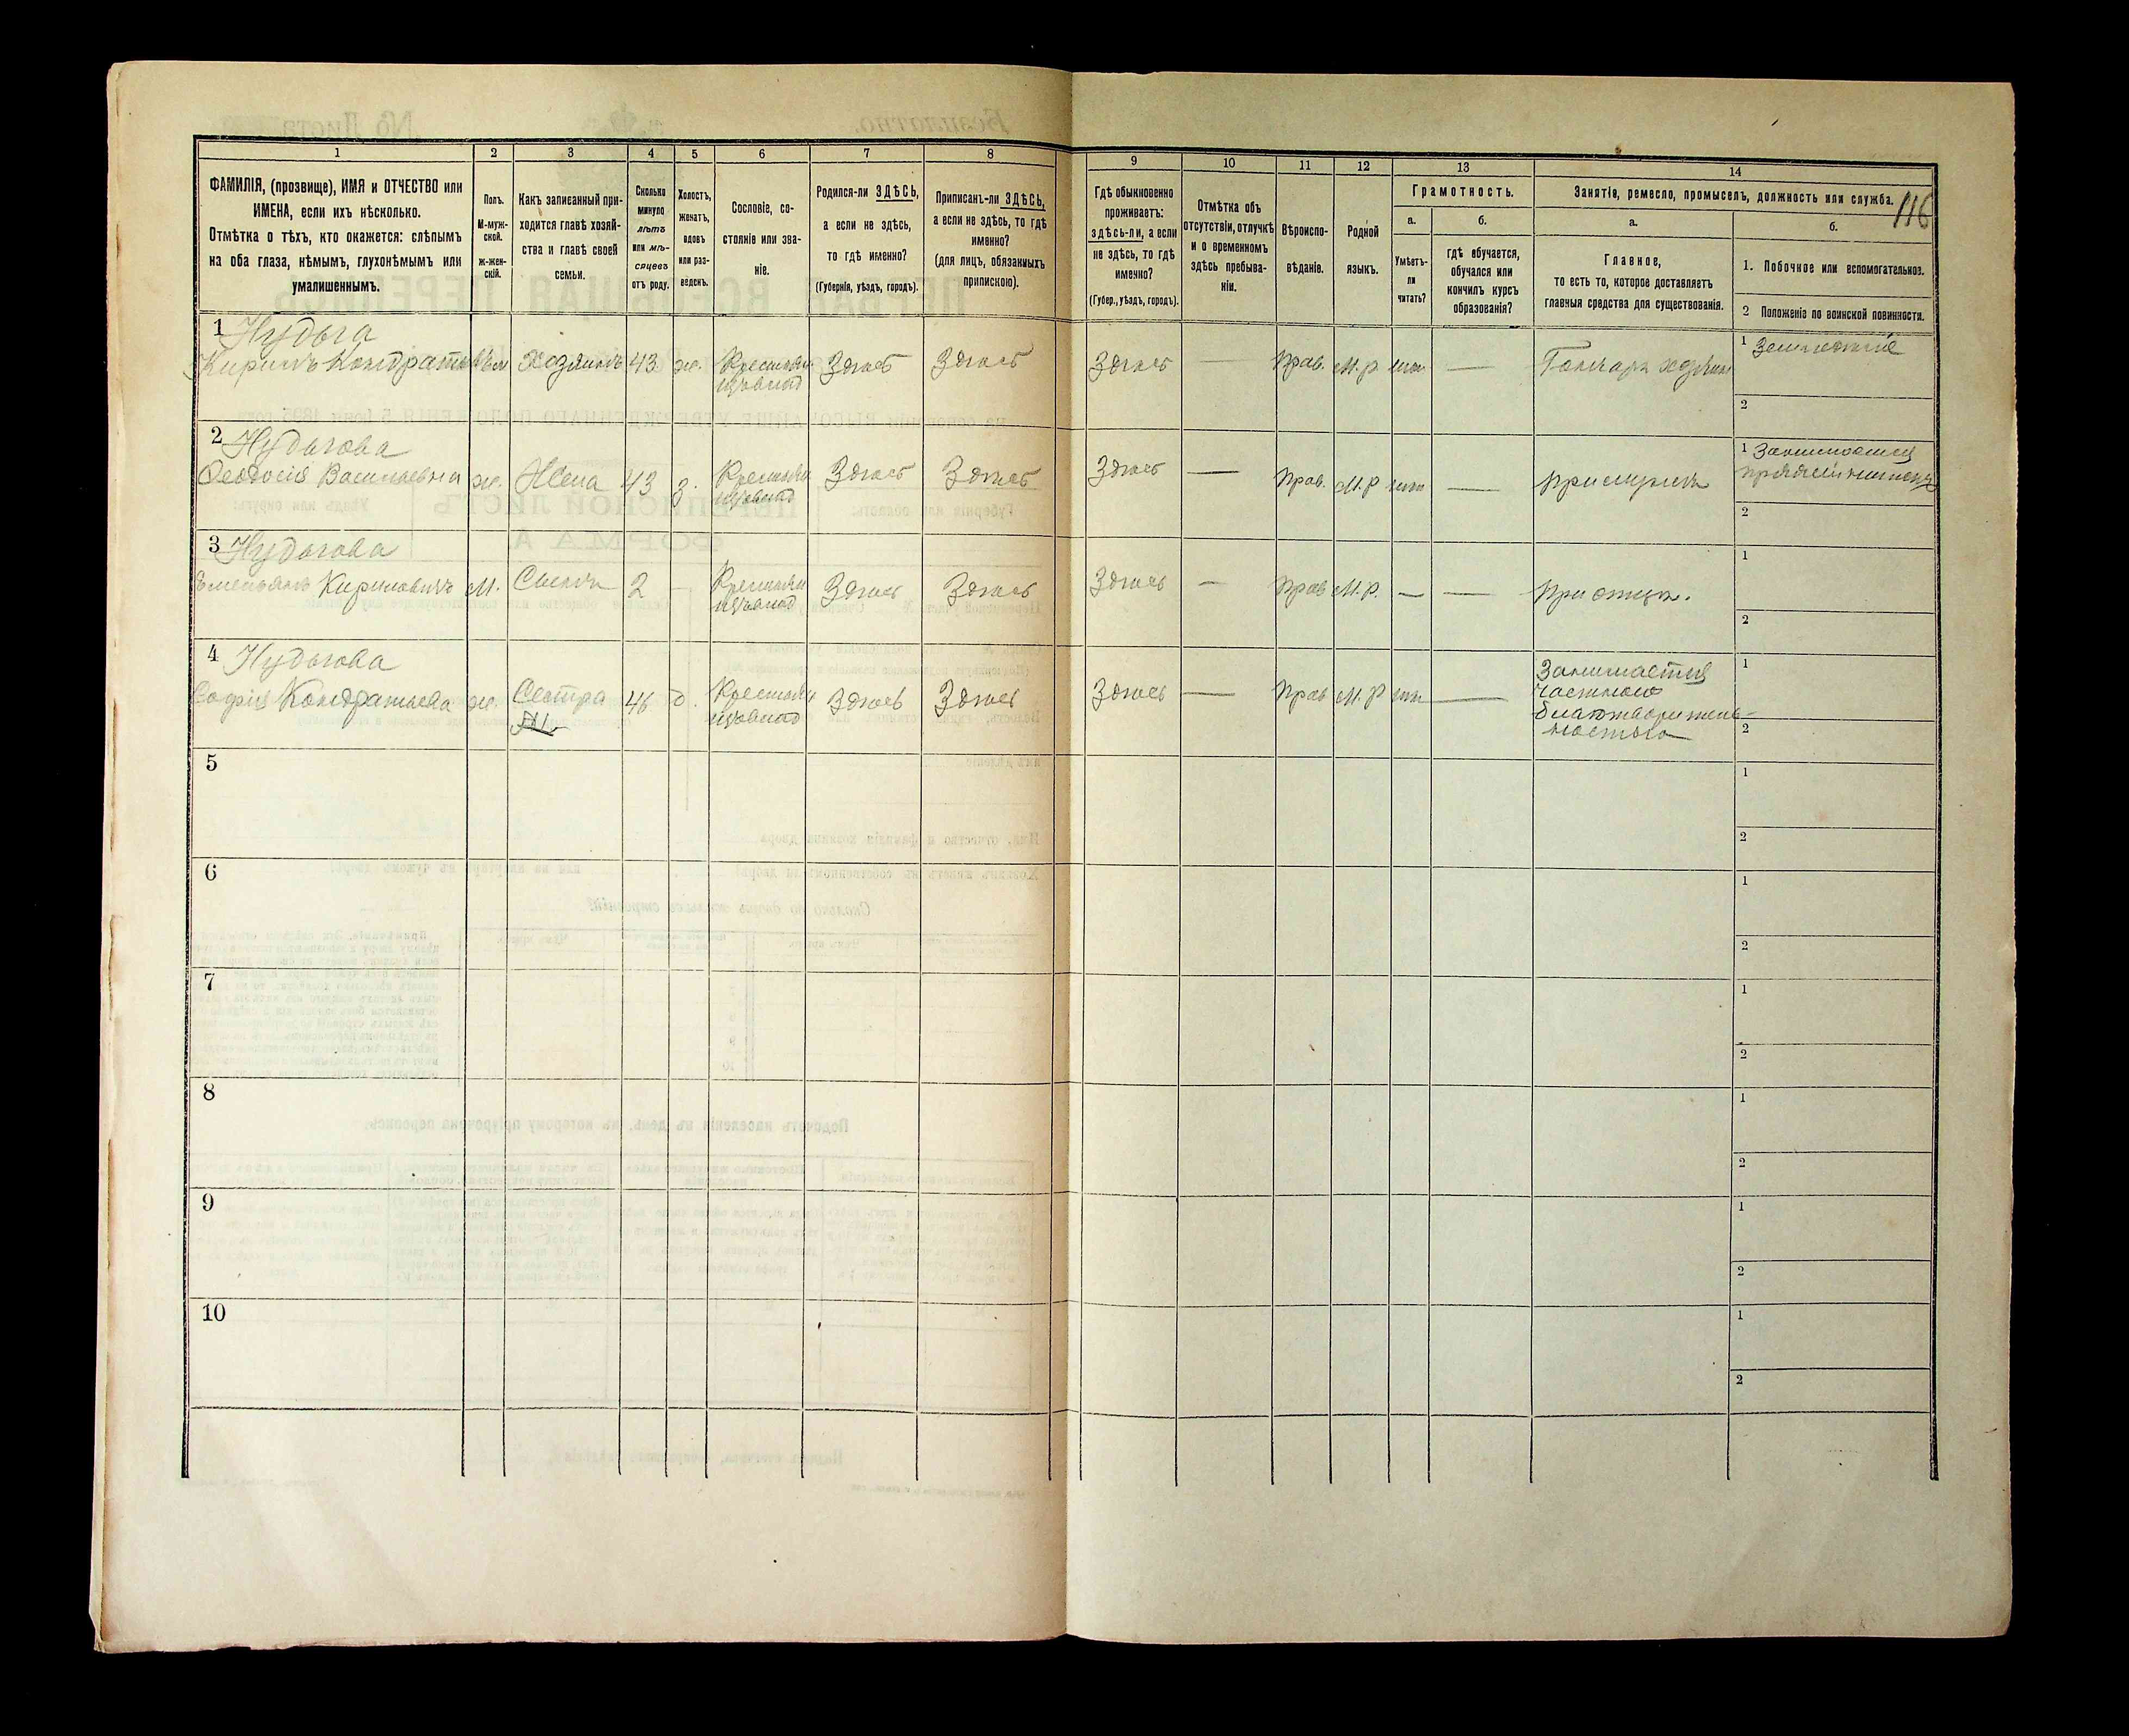 1
2
3
4
5
6
7
8
9
10
11
12
13
14
ФАМИЛІЯ, (прозвище), ИМЯ и ОТЧЕСТВО или
ИМЕНА, если ихъ нѣсколько.
Отмѣтка о тѣхъ, кто окажется: слѣпымъ
на оба глаза, нѣмымъ, глухонѣмымъ или
умалишеннымъ.
Полъ.
М-муж-
ской.
ж-жен-
скій.
Какъ записанный при-
ходится главѣ хозяй-
ства и главѣ своей
семьи.
Сколько
минуло
лѣтъ
или мѣ-
сяцевъ
отъ роду.
Холостъ,
женатъ,
вдовъ
или раз-
веденъ.
Сословіе, со-
стояніе или зва-
ніе.
Родился-ли ЗДѢСЬ,
а если не здѣсь,
то гдѣ именно?
(Губернія, уѣздъ, городъ).
Приписанъ-ли ЗДѢСЬ,
а если не здѣсь, то гдѣ
именно?
(для лицъ, обязанныхъ
припискою).
Гдѣ обыкновенно
проживаетъ:
здѣсь-ли, а если
не здѣсь, то гдѣ
именно?
(Губер., уѣздъ, городъ).
Отмѣтка объ
отсутствіи, отлучкѣ
и о временномъ
здѣсь пребыва-
ніи.
Вѣроиспо-
вѣданіе.
Родной
языкъ.
Грамотность.
а.
б.
Умѣетъ-
ли
читать?
гдѣ обучается,
обучался или
кончилъ курсъ
образованія?
Занятіе, ремесло, промыселъ, должность или служба.
116
а.
б.
Главное,
то есть то, которое доставляетъ
главныя средства для существованія.
1. Побочное или вспомогательное.
2 Положеніе по воинской повинности.
1 Нудьга
Кирилъ Кондратьевъ м Хозяинъ 43 ж. Крестьян Здѣсь Здѣсь Здѣсь — Прав. М.р — Гончаръ хозяинъ 1 Земледѣліе
2
2 Нудьгова
Феодосія Васильевна ж. Жена 43 з. Крестьян Здѣсь Здѣсь Здѣсь — Прав. М.р — При мужѣ 1 Занимается
2
3 Нудьгова
Емельянъ Кириловичъ М. Сынъ 2 — Крестьян Здѣсь Здѣсь Здѣсь — Прав М.р. — — При отцѣ. 1
2
4 Нудьгова
Софія Кондратьева ж. Сестра 46 д. Крестьян Здѣсь Здѣсь Здѣсь — Прав М.р — Занимается 1
частною
благотворитель-
ностью 2
5 1
2
6 1
2
7 1
2
8 1
2
9 1
2
10 1
2